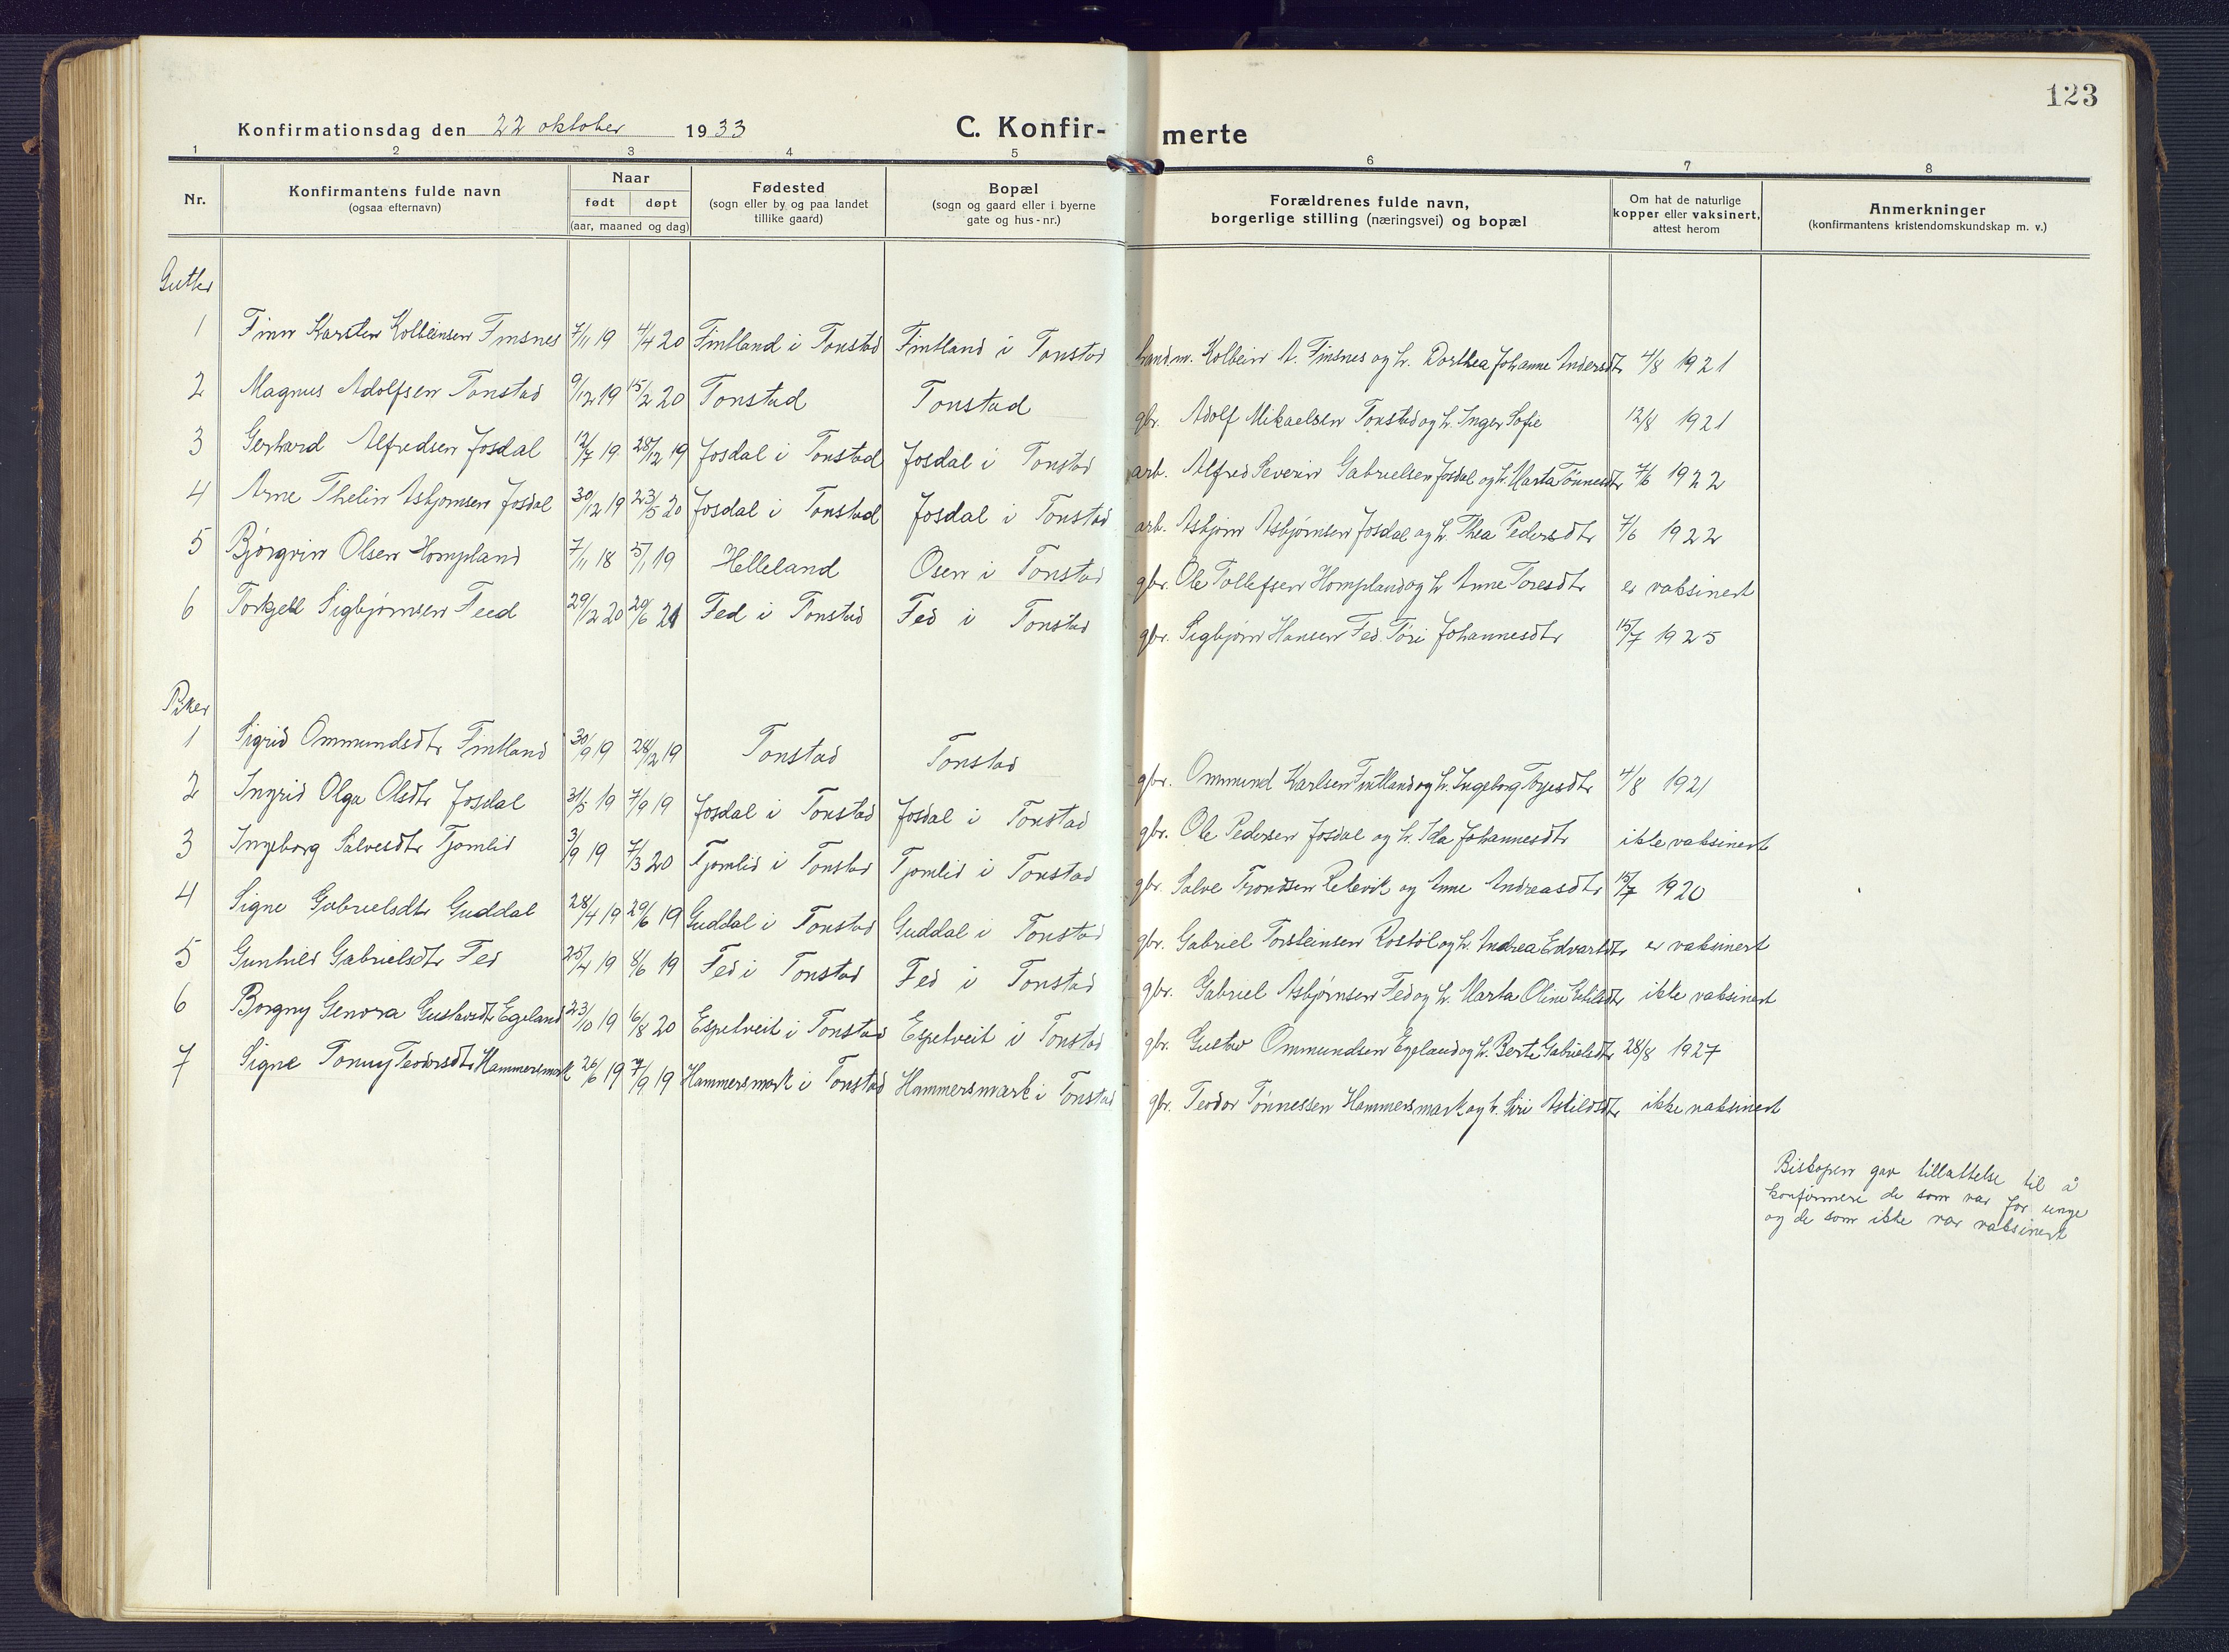 123
Konfirmationsdag den 22 oktober 1933 C. Konfir- merte
1 2 3 4 5 6 7 8
Nr. Konfirmantens fulde navn (ogsaa efternavn) Naar født døpt (aar, maaned og dag) Fødested (sogn eller by og paa landet tillike gaard) Bopæl (sogn og gaard eller i byerne gate og hus-nr.) Forældrenes fulde navn, borgerlige stilling (næringsvei) og bopæl Om hat de naturlige kopper eller vaksinert, attest herom Anmerkninger (konfirmantens kristendomskundskap m. v.)
Gutter
1 Finn Karsten Kolbeinsen Finsnes 7/11 19 4/4 20 Fintland i Tonstad Fintland i Tonstad landm. Kolbein A. Finsnes og h. Dorthea Johanne Andersdtr 4/8 1921
2 Magnus Adolfsen Tonstad 9/12 19 15/2 20 Tonstad Tonstad gbr. Adolf Mikaelsen Tonstad og h. Inger Sofie 12/8 1921
3 Gerhard Alfredsen Josdal 12/7 19 28/12 19 Josdal i Tonstad Josdal i Tonstad arb. Alfred Severin Gabrielsen Josdal og h. Marta Tønnesdtr 7/6 1922
4 Arne Thelin Asbjørnsen Josdal 30/12 19 23/5 20 Josdal i Tonstad Josdal i Tonstad arb. Asbjørn Asbjørnsen Josdal og h. Thea Pedersdtr 7/6 1922
5 Bjørgvin Olsen Hompland 7/11 18 5/1 19 Helleland Osen i Tonstad gbr. Ole Tollefsen Hompland og h Anne Toresdtr er vaksinert
6 Torkjell Sigbjørnsen Feed 29/12 20 29/6 21 Fed i Tonstad Fed i Tonstad gbr. Sigbjørn Hansen Fed. Tøri Johannesdtr 15/7 1925
Piker
1 Sigrid Ommundsdtr Fintland 30/9 19 28/12 19 Tonstad Tonstad gbr. Ommund Karlsen Fintland og h. Ingeborg Tryesdtr 4/8 1921
2 Ingrid Olga Olsdtr Josdal 31/5 19 7/9 19 Josdal i Tonstad Josdal i Tonstad gbr. Ole Pedersen Josdal og h. Ida Johannesdtr ikke vaksinert
3 Ingeborg Salvesdtr Tjomlid 3/9 19 7/3 20 Tjomlid i Tonstad Tjomlid i Tonstad gbr. Salve Trondsen Refsvik og Anne Andreasdtr 15/7 1920
4 Signe Gabrielsdtr Guddal 28/4 19 29/6 19 Guddal i Tonstad Guddal i Tonstad gbr. Gabriel Torsteinsen Rostøl og h. Andrea Edvartsdtr er vaksinert
5 Gunhild Gabrielsdtr Fed 25/4 19 8/6 19 Fed i Tonstad Fed i Tonstad gbr. Gabriel Asbjørnsen Fed og h. Marta Oline Ketilsdtr ikke vaksinert
6 Borgny Genora Gustavsdtr Egeland 23/10 19 16/8 20 Espetveit i Tonstad Espetveit i Tonstad gbr. Gustav Ommundsen Egeland og h. Berte Gabrielsdtr 28/8 1927
7 Signe Tonny Teodorsdtr Hammersmark 26/6 19 7/9 19 Hammersmark i Tonstad Hammersmark i Tonstad gbr. Teodor Tønnessen Hammersmark og h. Siri Askildsdtr ikke vaksinert
Biskopen gav tillattelse til å
konfirmere de som var for unge
og de som ikke var vaksinert